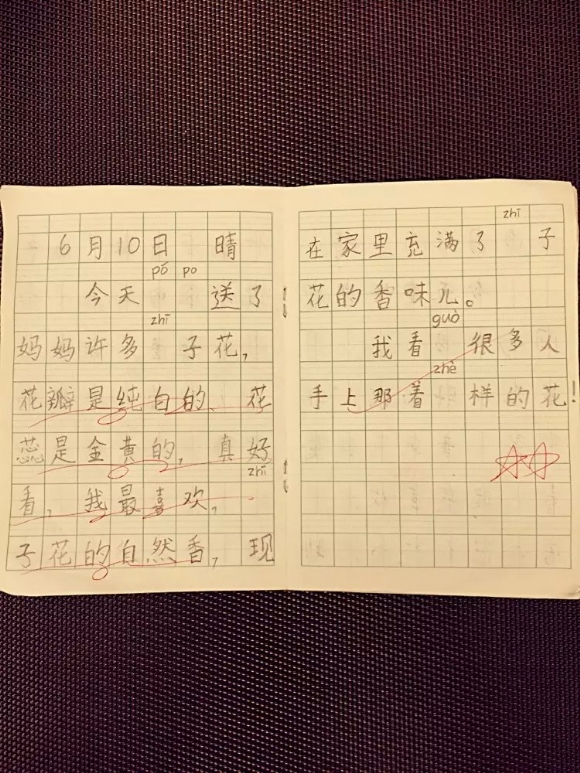 6月10日 晴
今天 pó po 送了
妈妈许多 zhī 子花,
花瓣是纯白的 花
蕊是金黄的, 真好
看, 我最喜欢, zhī
子花的自然香, 现
在家里充满了 zhī 子
花的香味儿。
我看 guò 很多人
手上那着 zhè 样的花!